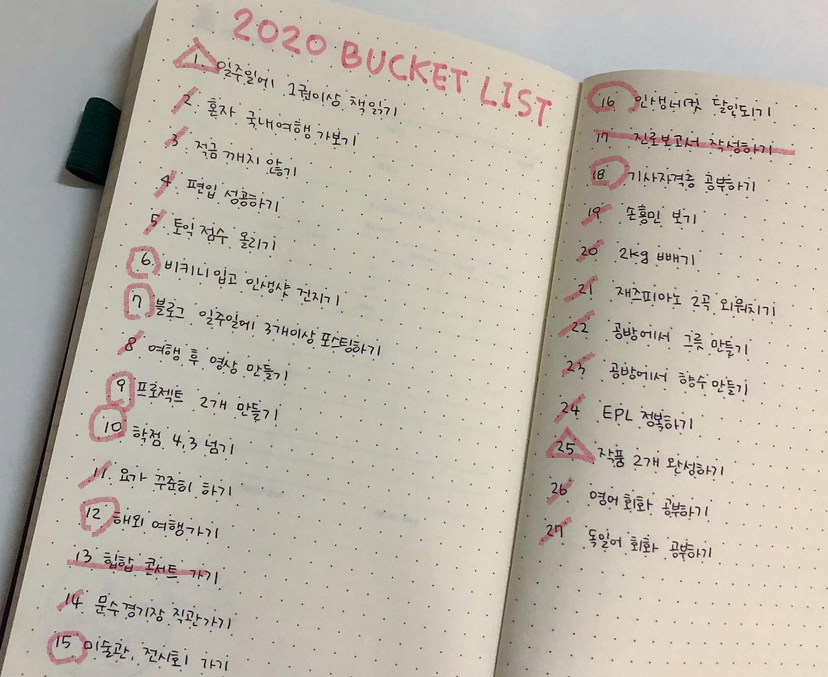 2020 BUCKET LIST
1. 일주일에 1권이상 책읽기
2. 혼자 국내여행 가보기
3. 적금 깨지 않기
4. 편입 성공하기
5. 토익 점수 올리기
6. 비키니 입고 인생샷 건지기
7. 블로그 일주일에 3개이상 포스팅하기
8 여행 후 영상 만들기
9 프로젝트 2개 만들기
10 학점 4.3 넘기
11. 요가 꾸준히 하기
12 해외 여행가기
13 힙합 콘서트 가기
14 문수경기장 직관가기
15 미술관, 전시회 가기
16 인생네컷 달인되기
17 진로보고서 작성하기
18 기사자격증 공부하기
19 손흥민 보기
20 2kg 빼기
21 재즈피아노 2곡 외워치기
22 공방에서 그릇 만들기
23 공방에서 향수 만들기
24 EPL 정복하기
25 작품 2개 완성하기
26 영어 회화 공부하기
27 독일어 회화 공부하기